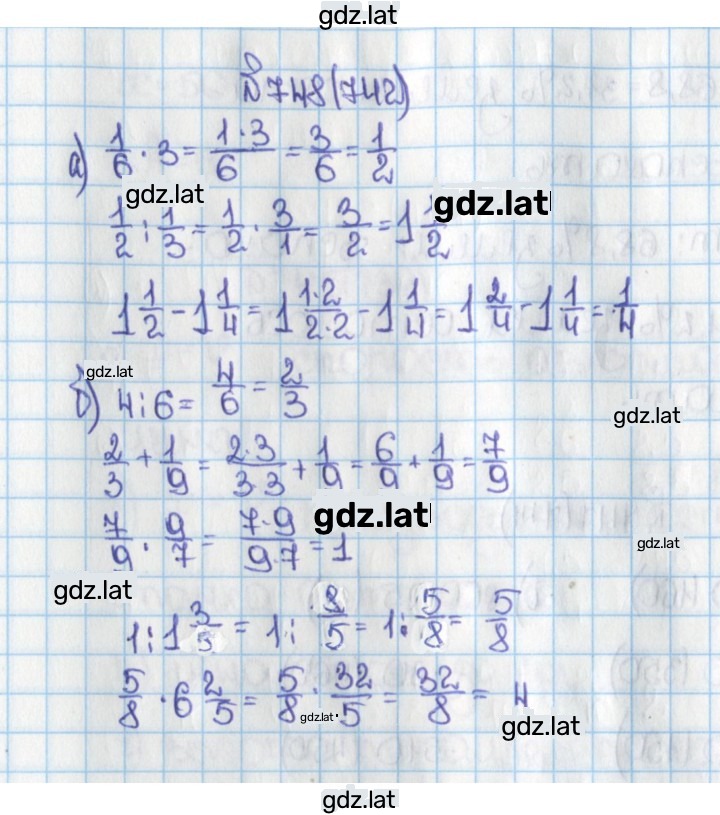 gdz.lat
№748(742)
а) 1/6 · 3 = 1·3/6 = 3/6 = 1/2
gdz.lat
gdz.lat
1/2 : 1/3 = 1/2 · 3/1 = 3/2 = 1 1/2
1 1/2 - 1 1/4 = 1 1·2/2·2 - 1 1/4 = 1 2/4 - 1 1/4 = 1/4
gdz.lat
б) 4:6 = 4/6 = 2/3
gdz.lat
2/3 + 1/9 = 2·3/3·3 + 1/9 = 6/9 + 1/9 = 7/9
gdz.lat
7/9 · 9/7 = 7·9/9·7 = 1
gdz.lat
gdz.lat
1 : 1 3/5 = 1 : 8/5 = 1 : 5/8 = 5/8
5/8 · 6 2/5 = 5/8 · 32/5 = 32/8 = 4
gdz.lat
gdz.lat
gdz.lat